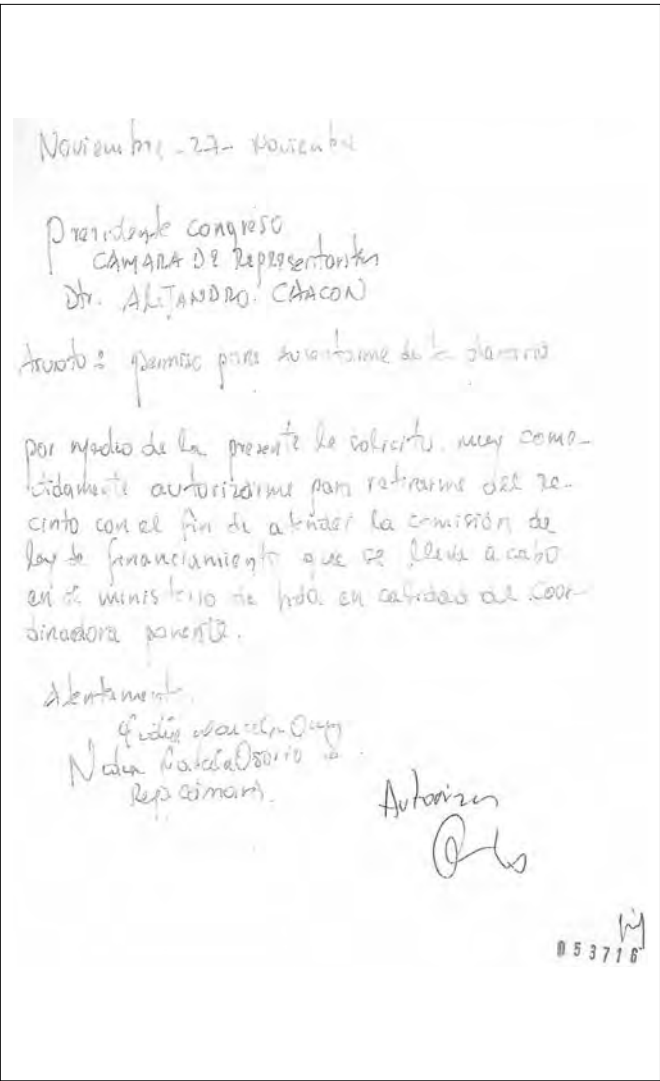 Noviembre - 27 - Noviembre
Presidente congreso
CAMARA DE Representantes
Dr. ALEJANDRO CHACON
Asunto: permiso para ausentarme de la plenaria
por medio de la presente le solicito muy come-
didamente autorizarme para retirarme del re-
cinto con el fin de atender la comisión de
ley de financiamiento que se lleva a cabo
en el ministerio de hda. en calidad de Coor-
dinadora ponente.
Atentamente,
Osorio
Rep. Cámara.
053716